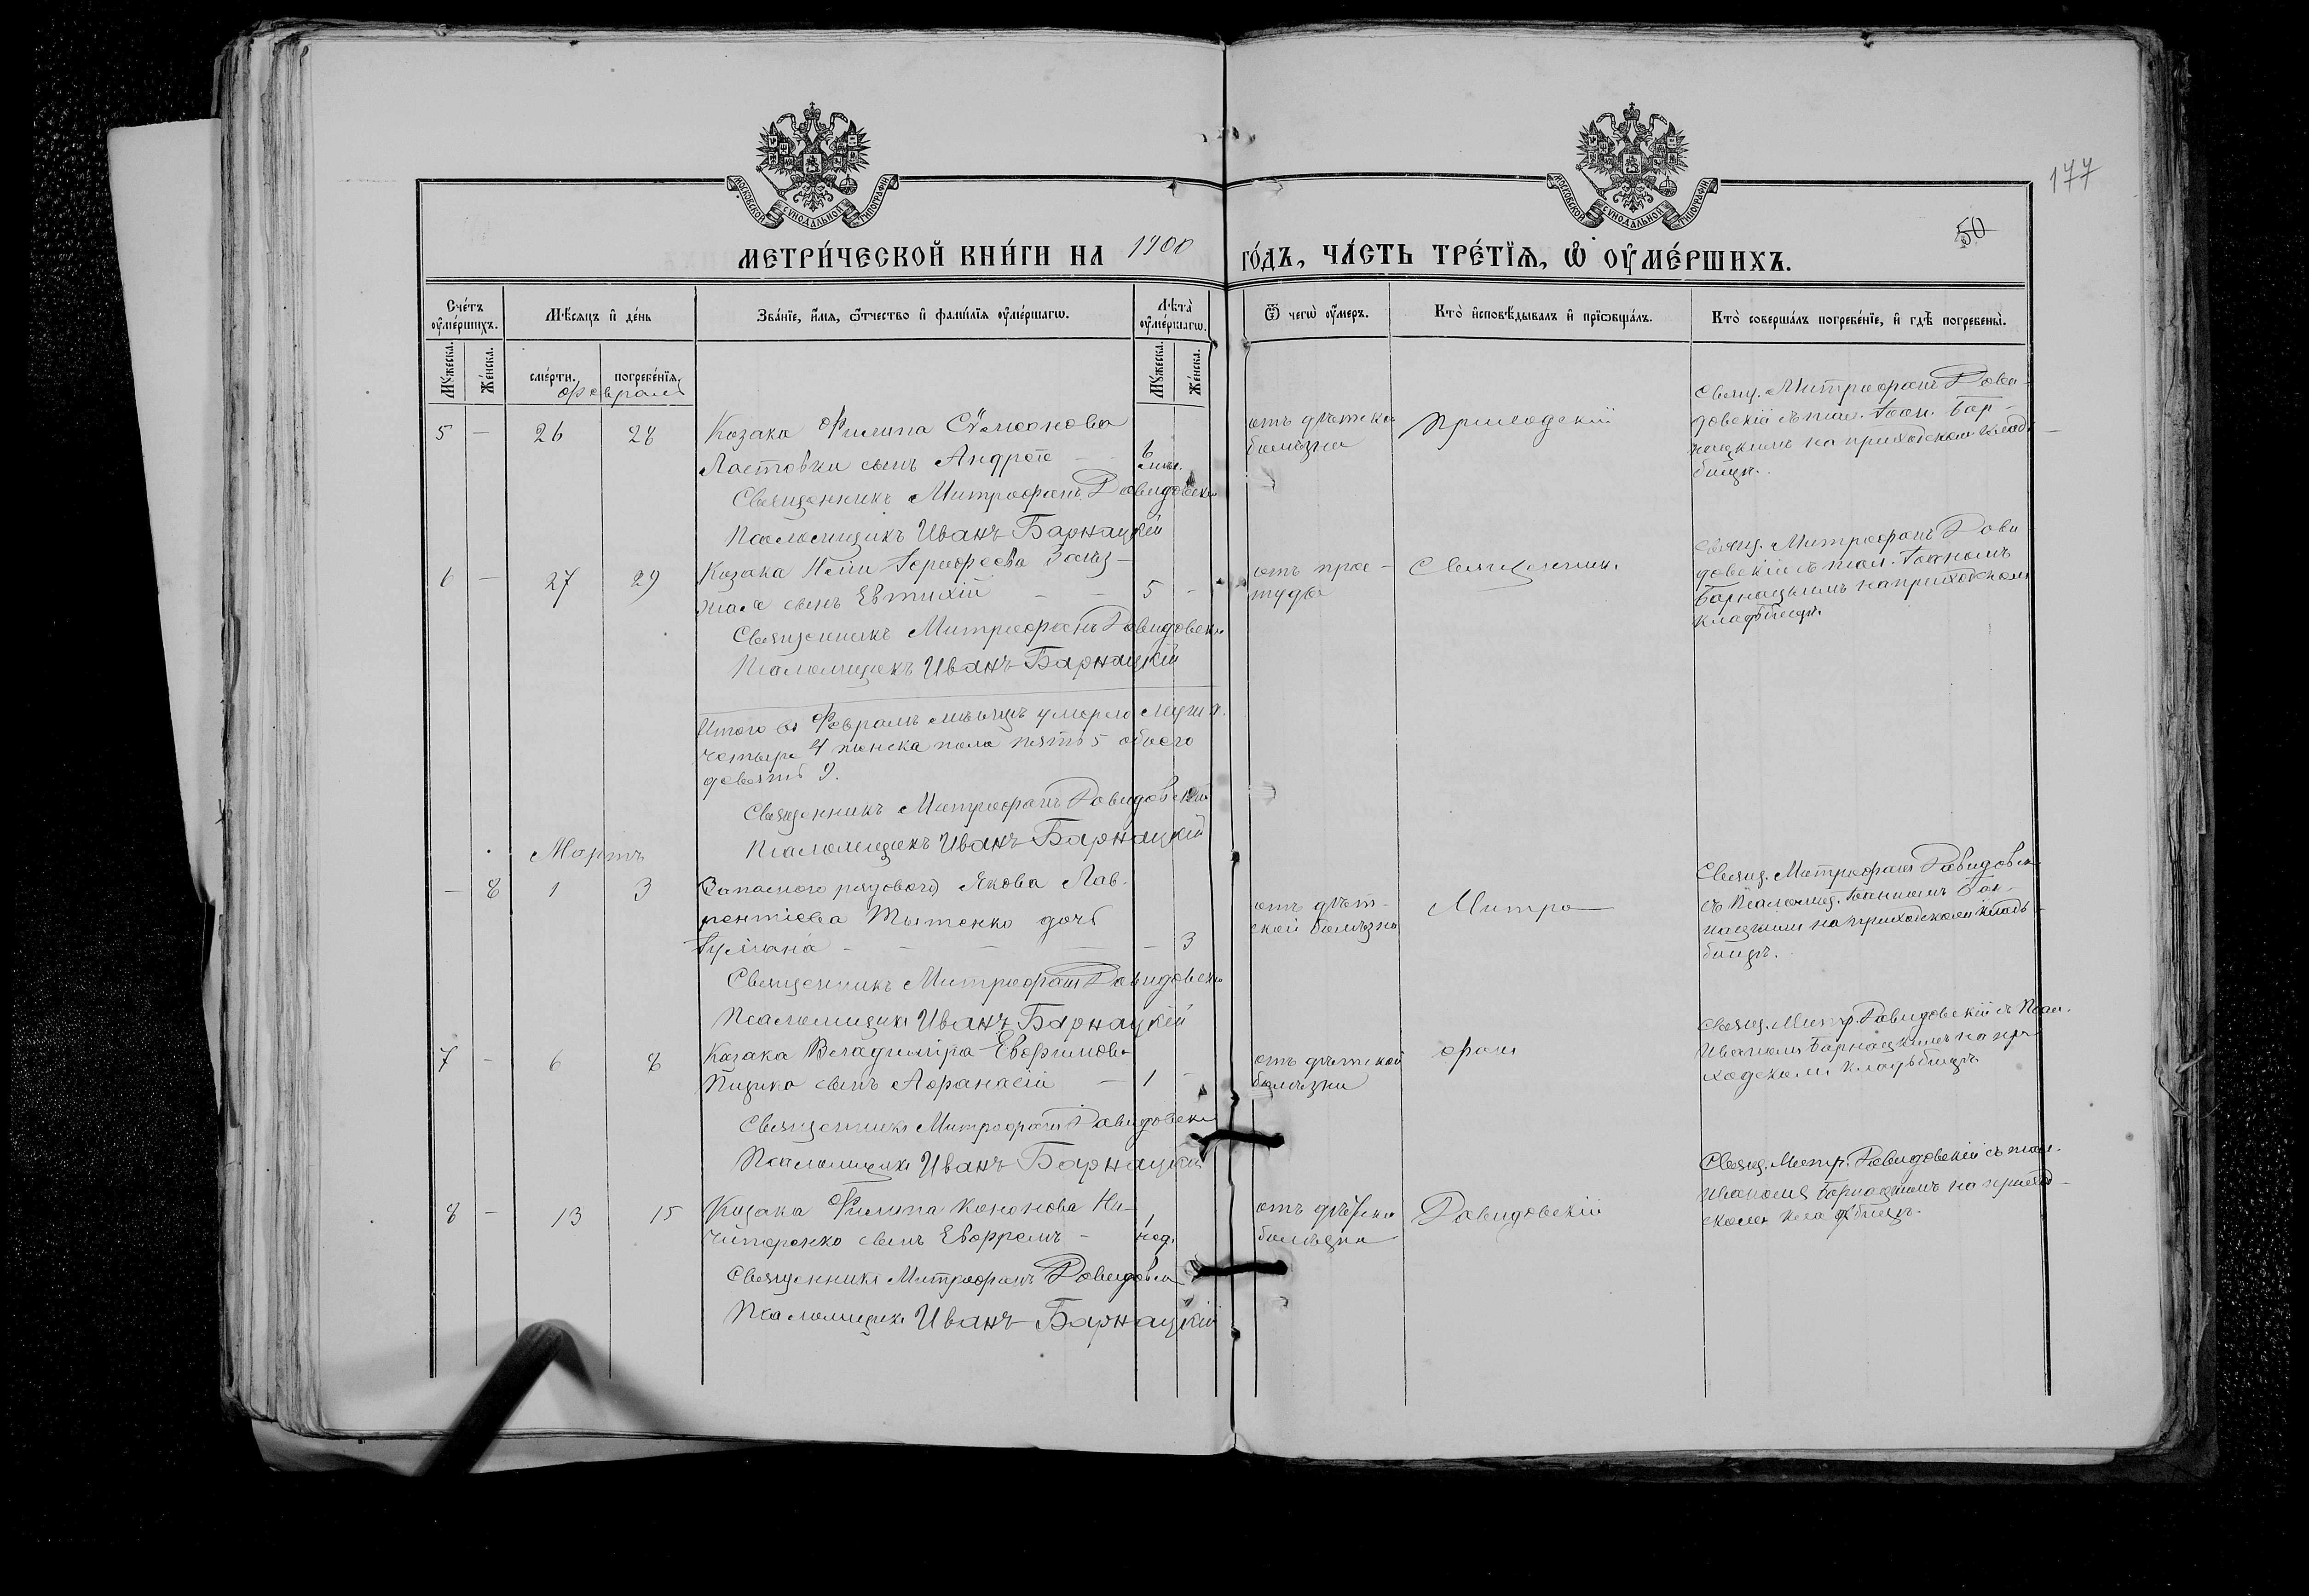 177
50
МОСКОВСКОЙ СѴНОДАЛЬНОЙ ТИПОГРАФІИ
МОСКОВСКОЙ СѴНОДАЛЬНОЙ ТИПОГРАФІИ
МЕТРИ́ЧЕСКОЙ КНИ́ГИ НА 1900 ГО́ДЪ, ЧА́СТЬ ТРЕ́ТІѦ, Ѡ ОУМЕ́РШИХЪ.
Сче́тъ оумершихъ.
Мѣсяцъ и де́нь
Зва́ніе, и́мя, ѻтчество и фами́лія оуме́ршагѡ.
Лѣта̀ оумершагѡ.
Ѿ чегѡ̀ оумеръ.
Кто̀ исповѣдывалъ и пріѡбща́лъ.
Кто̀ соверша́лъ погребе́ніе, и гдѣ погребены̀.
Мужеска.
Же́нска.
сме́рти.
погребе́нія.
Мужеска.
Же́нска.
Февраль
5 - 26 28
Козака Филипа Сѵмеонова
Ластовки сынъ Андрей - - 6 мѣс.
Священникъ Митрофанъ Давидовскій
Псаломщикъ Иванъ Барнацкій
отъ дѣтской
болѣзни
Приходскій
Свящ. Митрофанъ Дави-
довскій съ псал. Іоан. Бар-
нацкимъ на приходском кладь-
бищѣ.
6 - 27 29
Козака
сынъ Евтихій - - 5 -
Священникъ Митрофанъ Давидовскій
Псаломщикъ Иванъ Барнацкій
отъ прос-
туды
Священник
Свящ. Митрофанъ Дави
довскій съ псал. Іоанномъ
Барнацкимъ на приходском
кладбищѣ
Итого въ Февралѣ мѣсяцѣ умерло мужа.
четыре 4 женска пола пять 5 обоего
девять 9.
Священникъ Митрофанъ Давидовскій
Псаломщикъ Иванъ Барнацкій
Мартъ
- 8 1 3
Запасного рядового Якова Лав-
рентіева дочь
Іуліана - - - - - 3
Священникъ Митрофанъ Давидовскій
Псаломщикъ Иванъ Барнацкій
отъ дѣт-
ской болѣзни
Митро
Свящ. Митрофанъ Давидовскій
съ Псаломщ. Іоанномъ Бар-
нацкимъ на приходском кладь-
бищѣ.
7 - 6 8
Козака Владиміра Евфимова
сынъ Афанасій - 1 -
Священникъ Митрофанъ Давидовскій
Псаломщикъ Иванъ Барнацкій
отъ дѣтской
болѣзни
фанъ
Свящ. Митр. Давидовскій съ Псал.
Иваномъ Барнацкимъ на при-
ходскомъ кладьбищѣ
8 - 13 15
Козака Филипа Кононова Ни-
чипоренко сынъ Ефремъ - 1 нед.
Священникъ Митрофанъ Давидовскій
Псаломщикъ Иванъ Барнацкій
отъ дѣтской
болѣзни
Давидовскій
Свящ. Митр. Давидовскій съ псал.
Иваномъ Барнацкимъ на приход-
скомъ кладбищѣ.